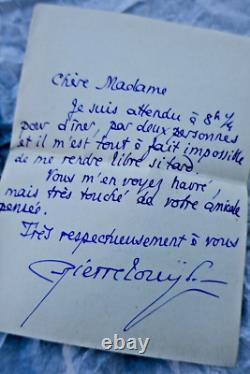 Chère Madame
Je suis attendu à 8h 1/4
pour dîner, par deux personnes
et il m'est tout à fait impossible
de me rendre libre si tard.
Vous m'en voyez navré,
mais très touché de votre amicale
pensée.
Très respectueusement à vous
Pierre Louÿs